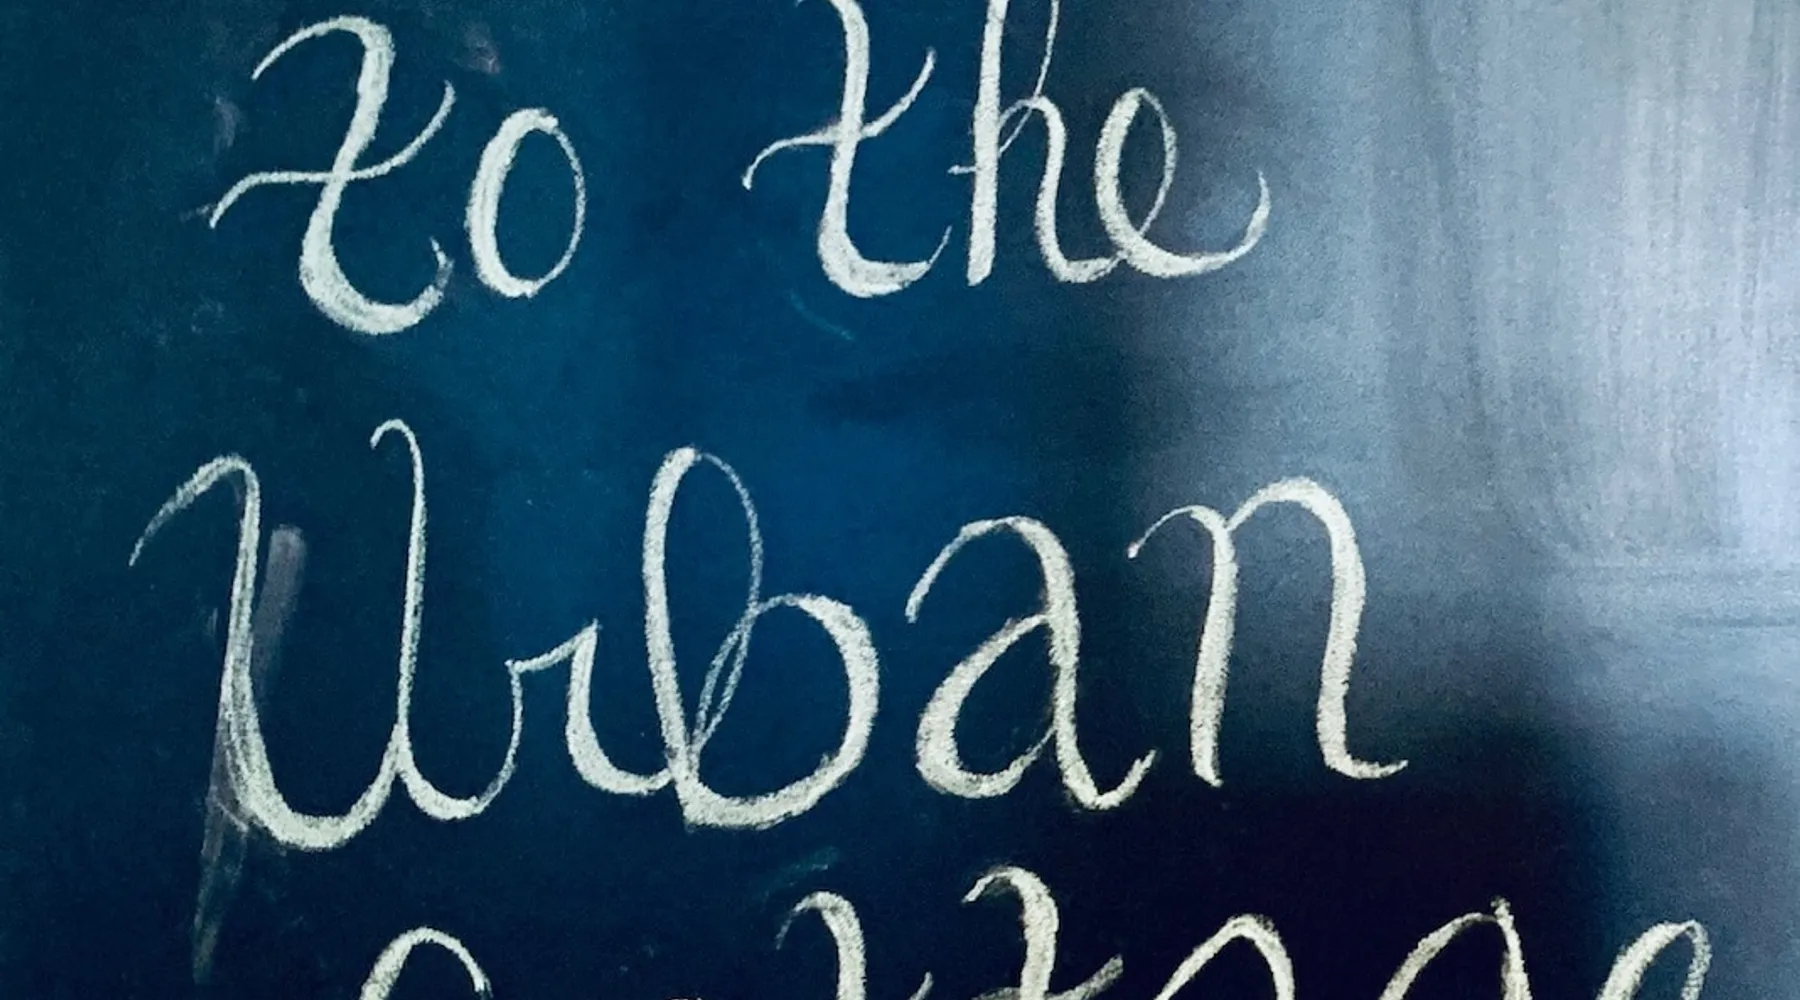 to the
Urban